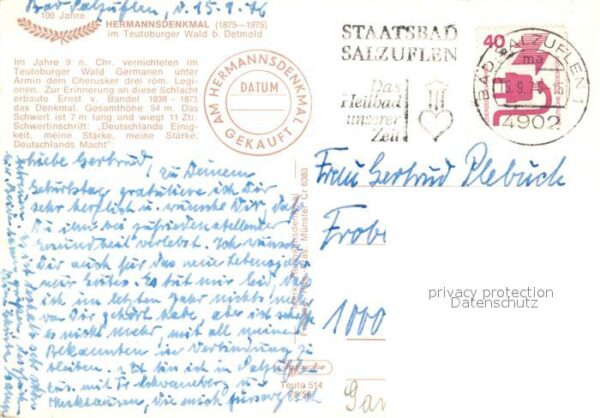 Bad Salzuflen, d. 15.9.76
100 Jahre
HERMANNSDENKMAL (1875—1975)
im Teutoburger Wald b. Detmold
Im Jahre 9 n. Chr. vernichteten im
Teutoburger Wald Germanen unter
Armin dem Cherusker drei röm. Legi-
onen. Zur Erinnerung an diese Schlacht
erbaute Ernst v. Bandel 1838 - 1875
das Denkmal. Gesamthöhe 54 m. Das
Schwert ist 7 m lang und wiegt 11 Ztr.
Schwertinschrift: „Deutschlands Einig-
keit, meine Stärke, meine Stärke,
Deutschlands Macht"
AM HERMANNSDENKMAL
DATUM
GEKAUFT
STAATSBAD
SALZUFLEN
Das
Heilbad
unserer
Zeit
40
BAD SALZUFLEN 1
15.9.
4902
Liebe Gertrud, zu Deinem
Geburtstag gratuliere ich Dir
sehr herzlich u. wünsche Dir, daß
Du ihn bei zufriedenstellender
Gesundheit verlebst. Ich wünsche
Dir auch für das neue Lebensjahr
nur Gutes. Es tut mir leid, daß
ich im letzten Jahr nichts mehr
von Dir gehört habe, aber ich schaffe
es nicht mehr mit all meinen
Bekannten in Verbindung zu
bleiben. Ich bin ich in Salzuflen
zus. mit Fr. Schwaneberg u.
die mich
Frau Gertrud Plebuch
Frobe
1000
Münster Gr 6383
Teuto 514
privacy protection
Datenschutz